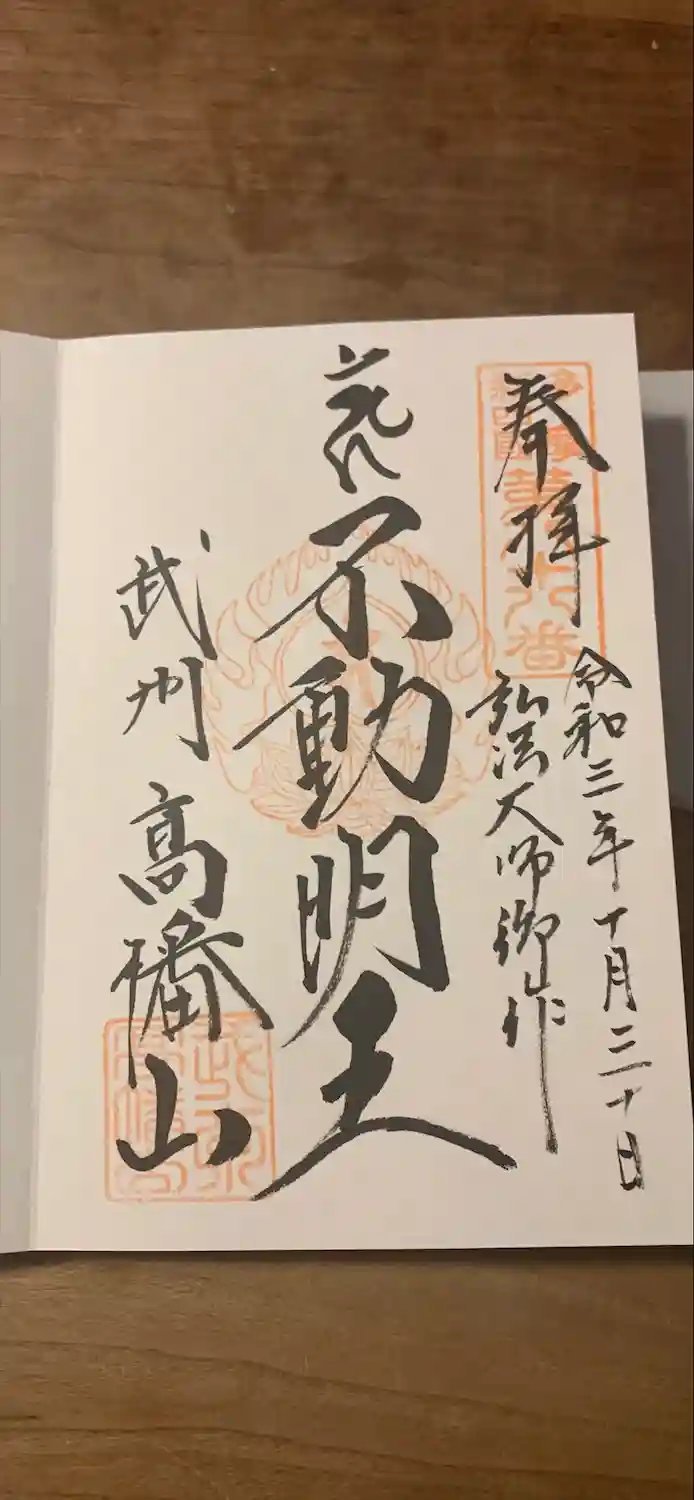 奉拝
令和三年十月三十日
弘法大師御作
不動明王
武州
高幡山